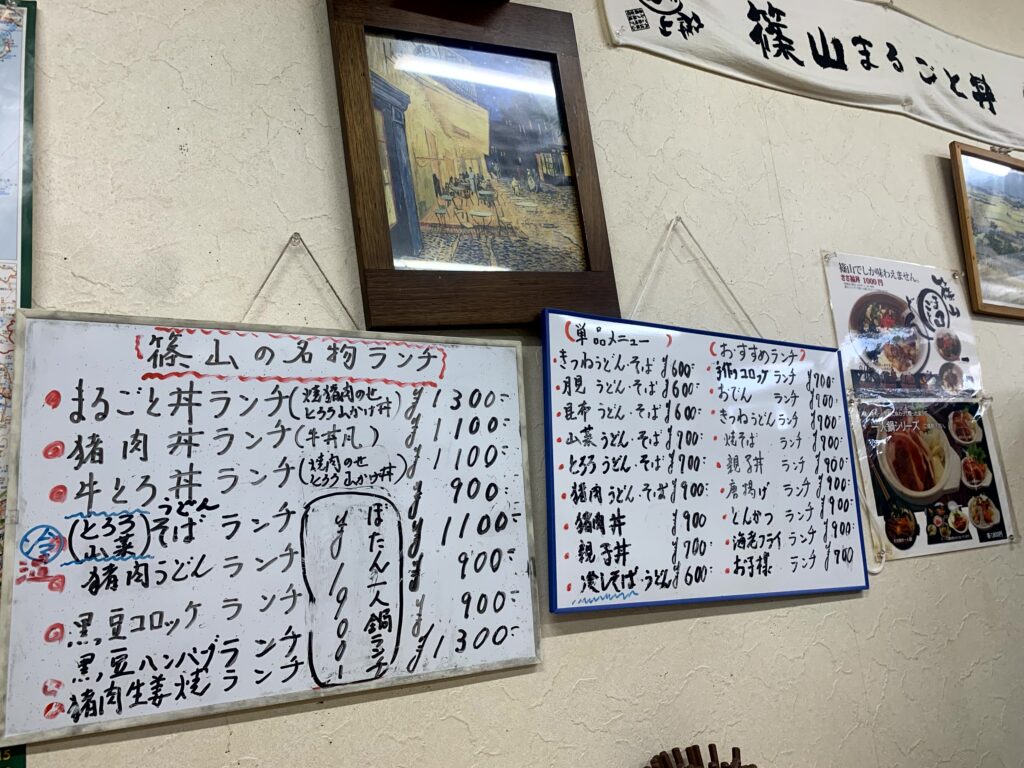 篠山の名物ランチ
まるごと丼ランチ(焼猪肉のせ とろろ山かけ丼) ¥1300-
猪肉丼ランチ(牛丼風) ¥1100-
牛とろ丼ランチ(焼肉のせ とろろ山かけ丼) ¥1100-
(とろろ 山菜)うどん そばランチ ¥900-
冷 温
猪肉うどんランチ ¥1100-
黒豆コロッケランチ ¥900-
黒豆ハンバーグランチ ¥900-
猪肉生姜焼ランチ ¥1300-
ぼたん一人鍋ランチ
¥1900-
(単品メニュー)
きつねうどん・そば ¥600-
月見うどん・そば ¥600-
昆布うどん・そば ¥600-
山菜うどん・そば ¥700-
とろろうどん・そば ¥700-
猪肉うどん・そば ¥900-
猪肉丼 ¥900
親子丼 ¥700
冷しそば・うどん ¥600-
(おすすめランチ)
手作りコロッケランチ ¥900-
おでんランチ
きつねうどんランチ
焼そばランチ
親子丼ランチ ¥900-
唐揚げランチ ¥900-
とんかつランチ ¥900-
海老フライランチ ¥900-
お子様ランチ
篠山まるごと丼
篠山でしか味わえません。
1000円
一人鍋シリーズ